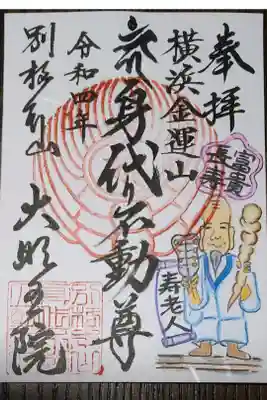 奉拝
横浜金運山
富貴
長寿
寿老人
身代り不動尊
令和四年
別格本山 大明王院